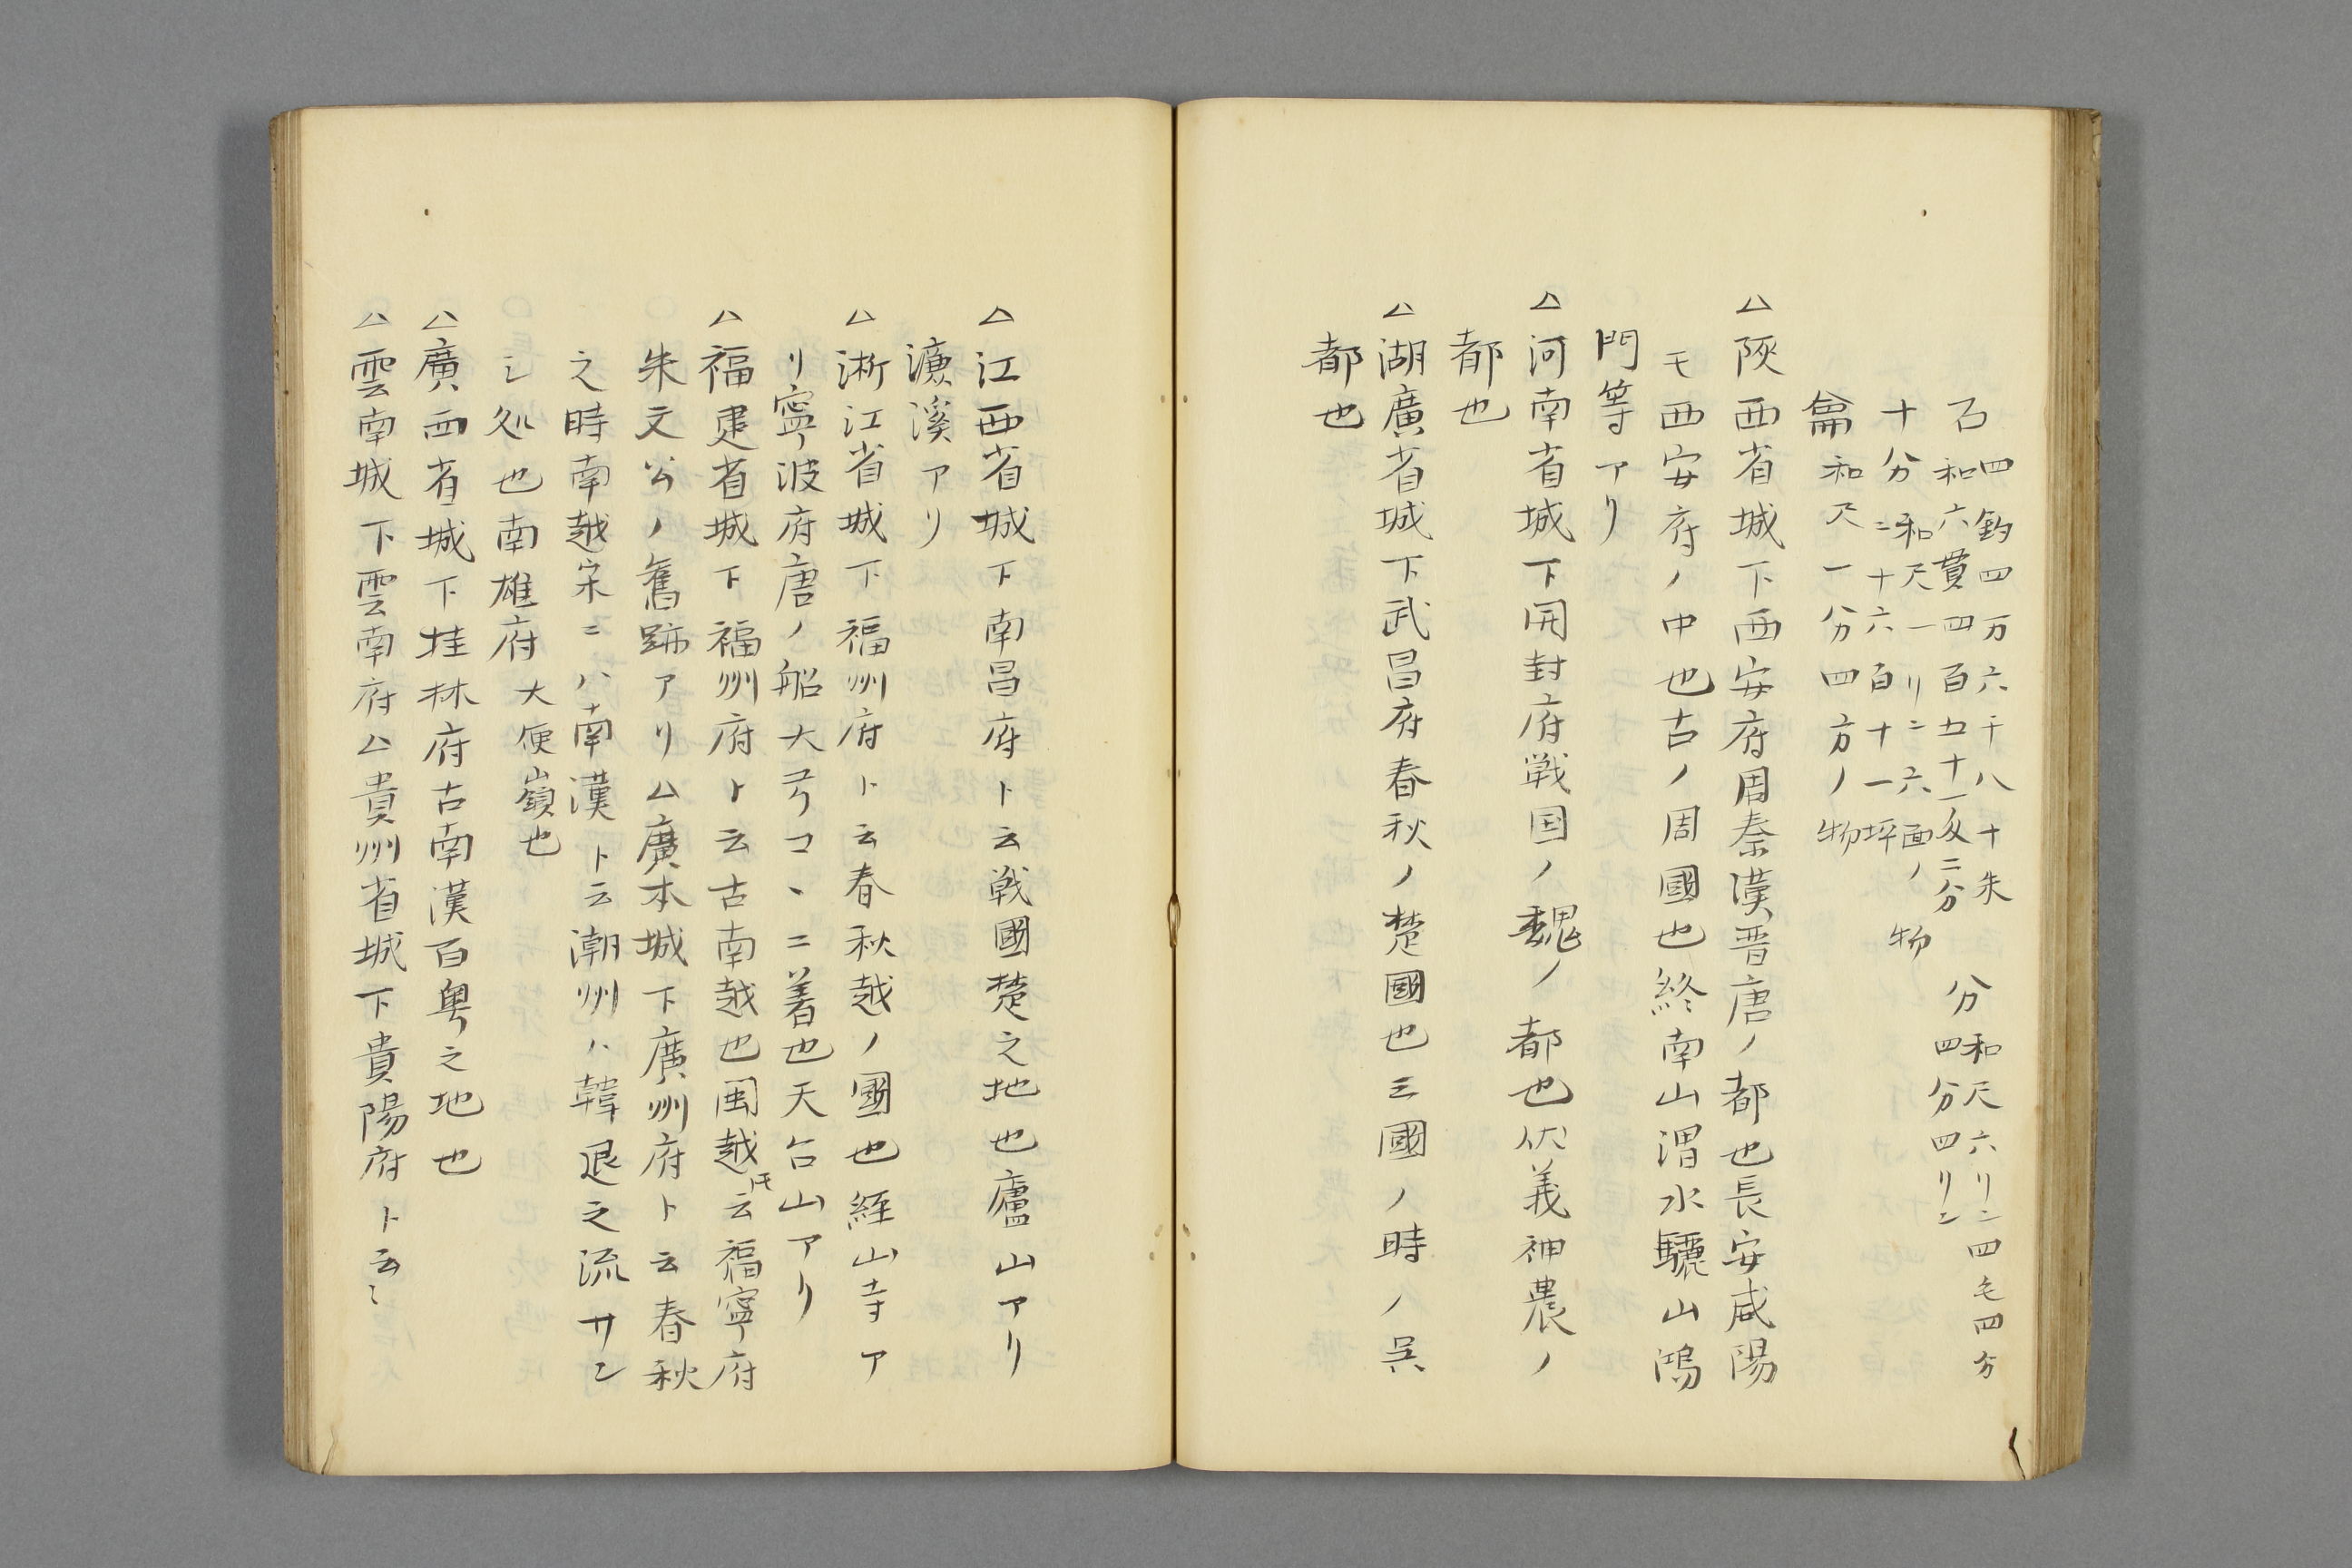 石 四鈞四万六千八十朱 和六貫四百五十一匁二分 分 和尺六リン四毛四分 四分四リン
十分 和尺一リン二六面ノ 二十六百十一坪 物
龠 和尺一分四方ノ物
△陝西省城下西安府周秦漢晋唐ノ都也長安咸陽
モ西安府ノ中也古ノ周國也終南山渭水驪山鴻
門等アリ
△河南省城下開封府戦国ノ魏ノ都也伏義神農ノ
都也
△湖廣省城下武昌府春秋ノ楚國也三國ノ時ノ呉
都也
△江西省城下南昌府ト云戦國楚之地也廬山アリ
濂溪アリ
△淅江省城下福州府ト云春秋越ノ國也経山寺ア
リ寧波府唐ノ船大形コヽニ着也天台山アリ
△福建省城下福州府ト云古南越也閩越氏云福寧府
朱文公ノ舊跡アリ△廣本城下廣州府ト云春秋
之時南越宋ニハ南漢ト云潮州ハ韓退之流サレ
シ処也南雄府大便嶺也
△廣西省城下桂林府古南漢百粤之地也
△雲南城下雲南府△貴州省城下貴陽府ト云〻